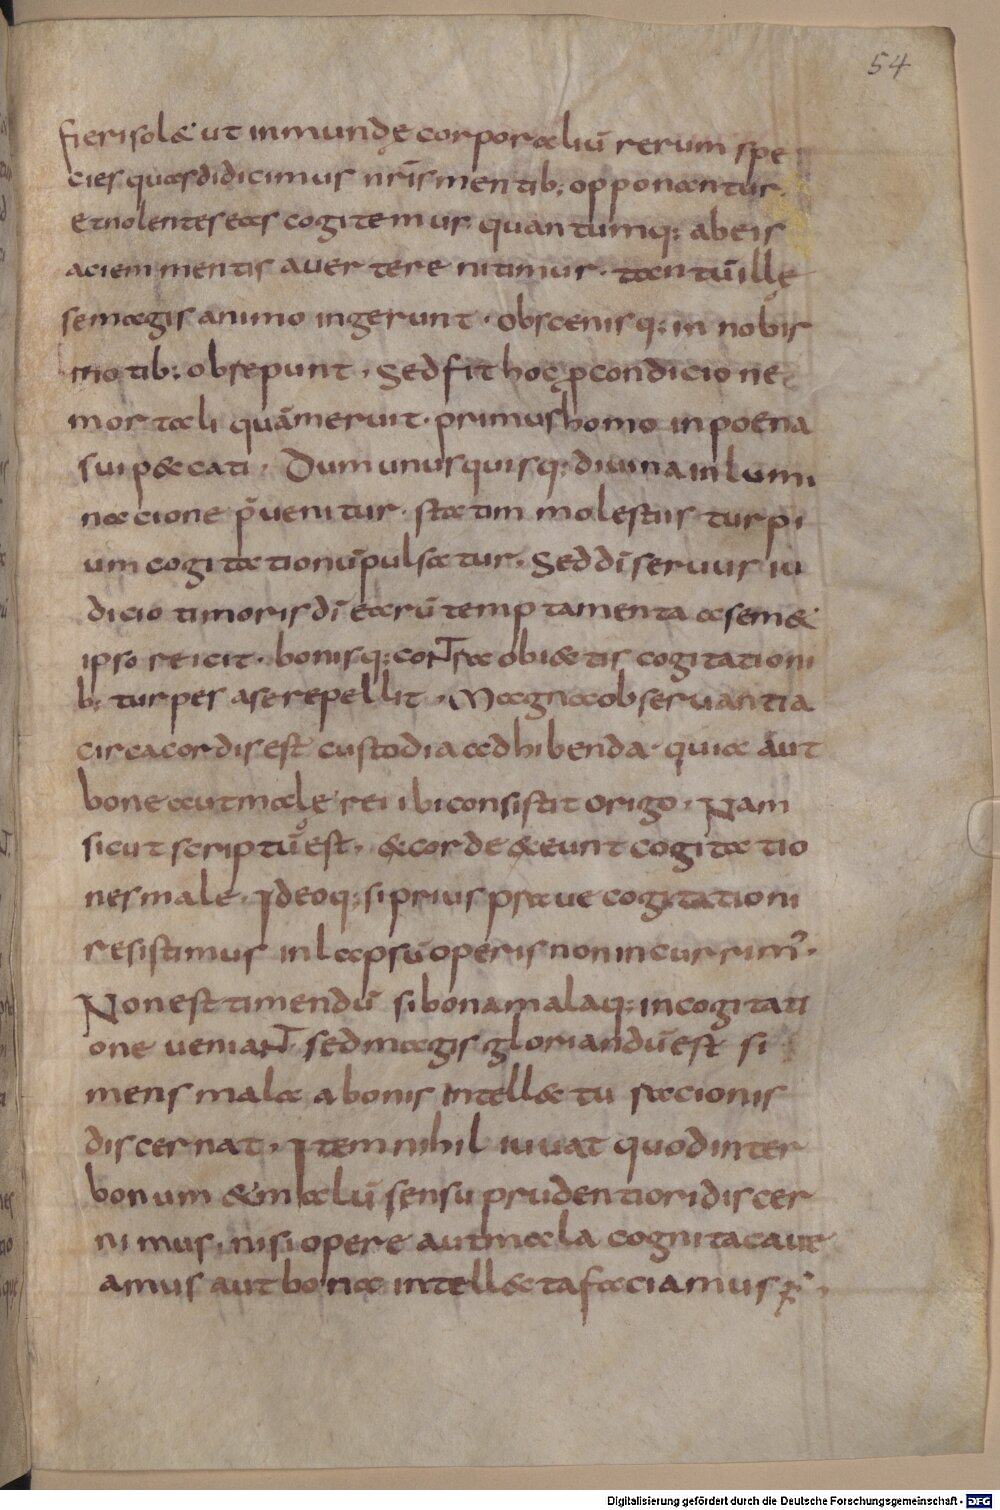 54
fieri sol& ut inmundę corporaliū rerum spe
cies quas didicimus nr̄is mentib; opponantur.
et nolentes eas cogitemus quantumq; ab eis
aciem mentis avertere nitimur. tantū illę
se magis animo ingerunt. obscenisq; in nobis
motib; obrepunt. Sed fit hoc ꝓ condicione
mortali quā meruit. primus homo in poena
sui peccati. Dum unusquisq; divina inlumi
nacione p̄venitur. statim molestiis turpi
um cogitationū pulsatur. Sed dī servus iu
dicio timoris dī earū temptamenta a sem&
ipso reicit. bonisq; contra obi&tis cogitationi
b; turpes a se repellit. Magna observantia
circa cordis est custodia adhibenda. quia aut
bone aut malę rei ibi consistit origo. Nam
sicut scriptū est. & corde &eunt cogitatio
nes male. Ideoq; si prius prave cogitationi
resistimus in lapsū operis non incurrim᾽.
Non est timendū si bona malaq; in cogitati
one veniant. sed magis gloriandū est si
mens mala a bonis intell&tu racionis
discernat. Item nihil iuvat quod inter
bonum & malū sensu prudentiori discer
nimus, nisi opere aut mala cognita cave
amus aut bona intell&ta faciamus.
Digitalisierung gefördert durch die Deutsche Forschungsgemeinschaft - DFG